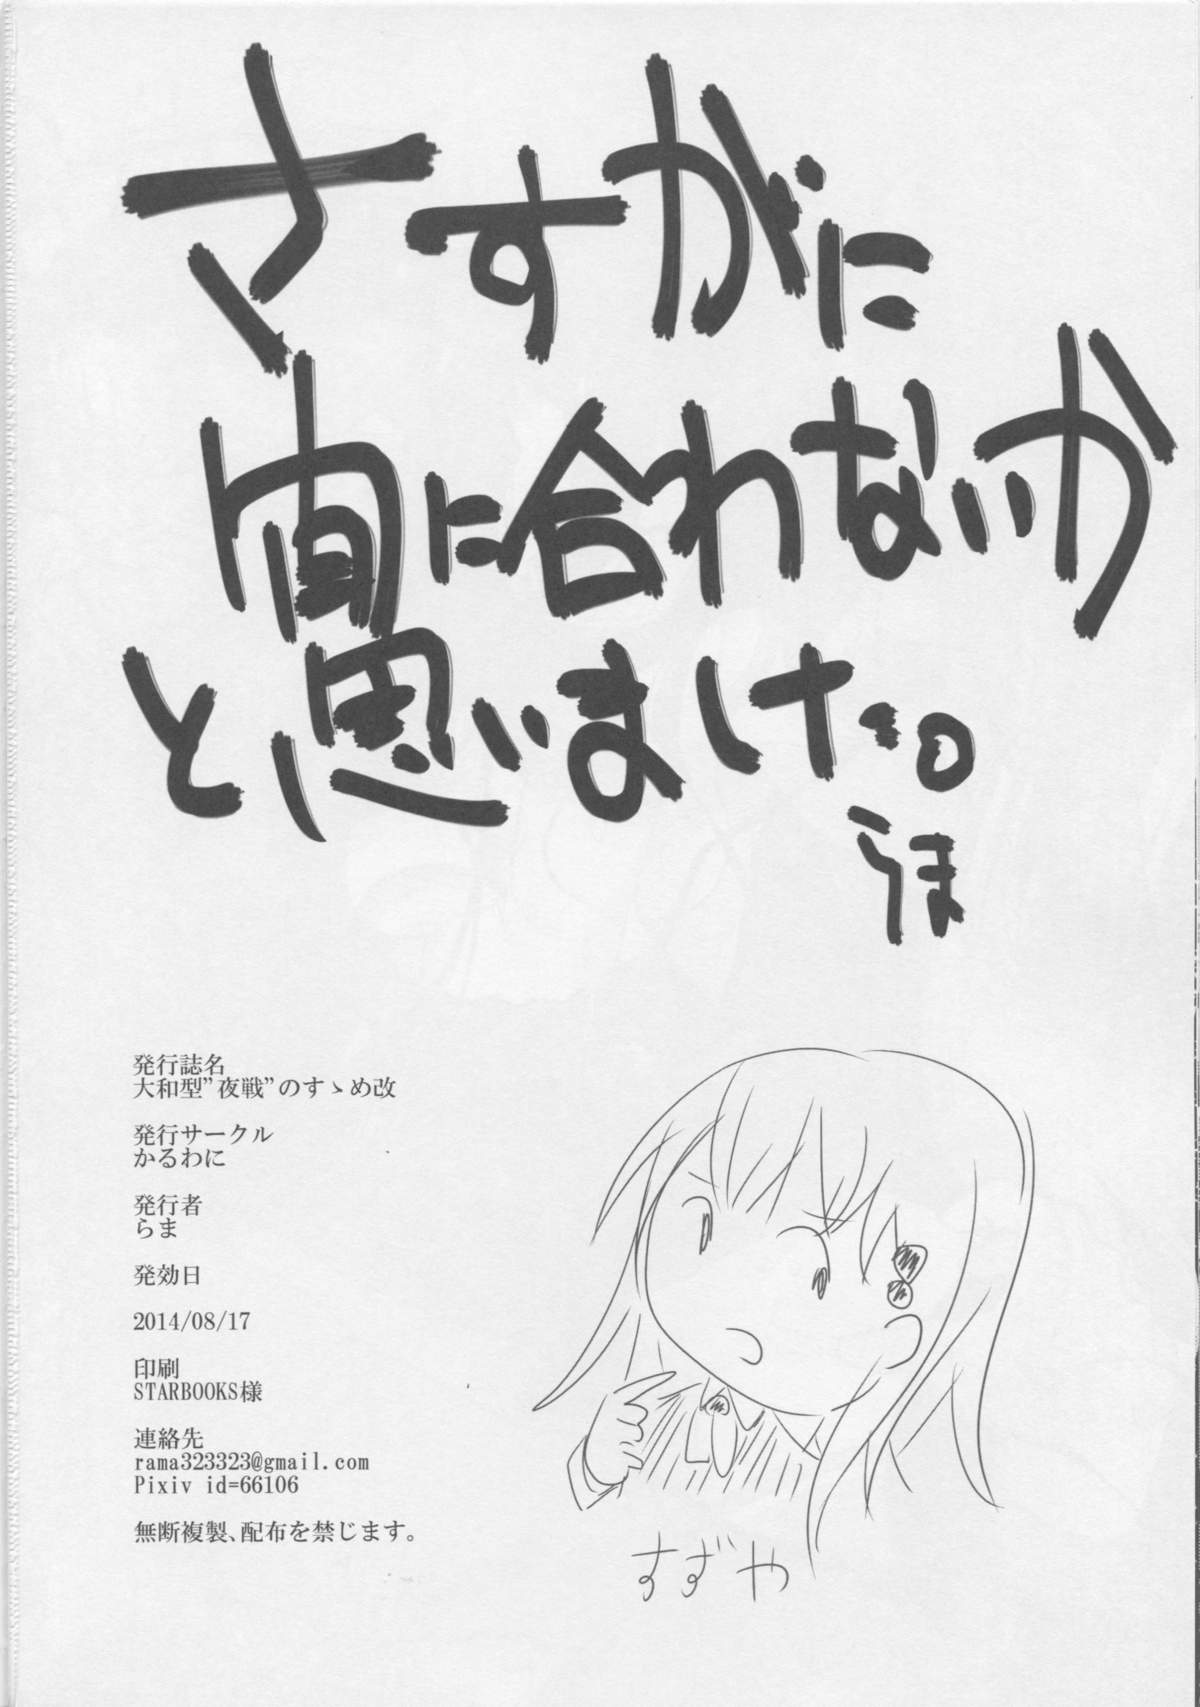 さすがに
間に合わないか
と思いました。
らま
発行誌名
大和型”夜戦”のすゝめ改
発行サークル
かるわに
発行者
らま
発効日
2014/08/17
印刷
STARBOOKS様
連絡先
rama323323@gmail.com
Pixiv id=66106
無断複製、配布を禁じます。
すずや